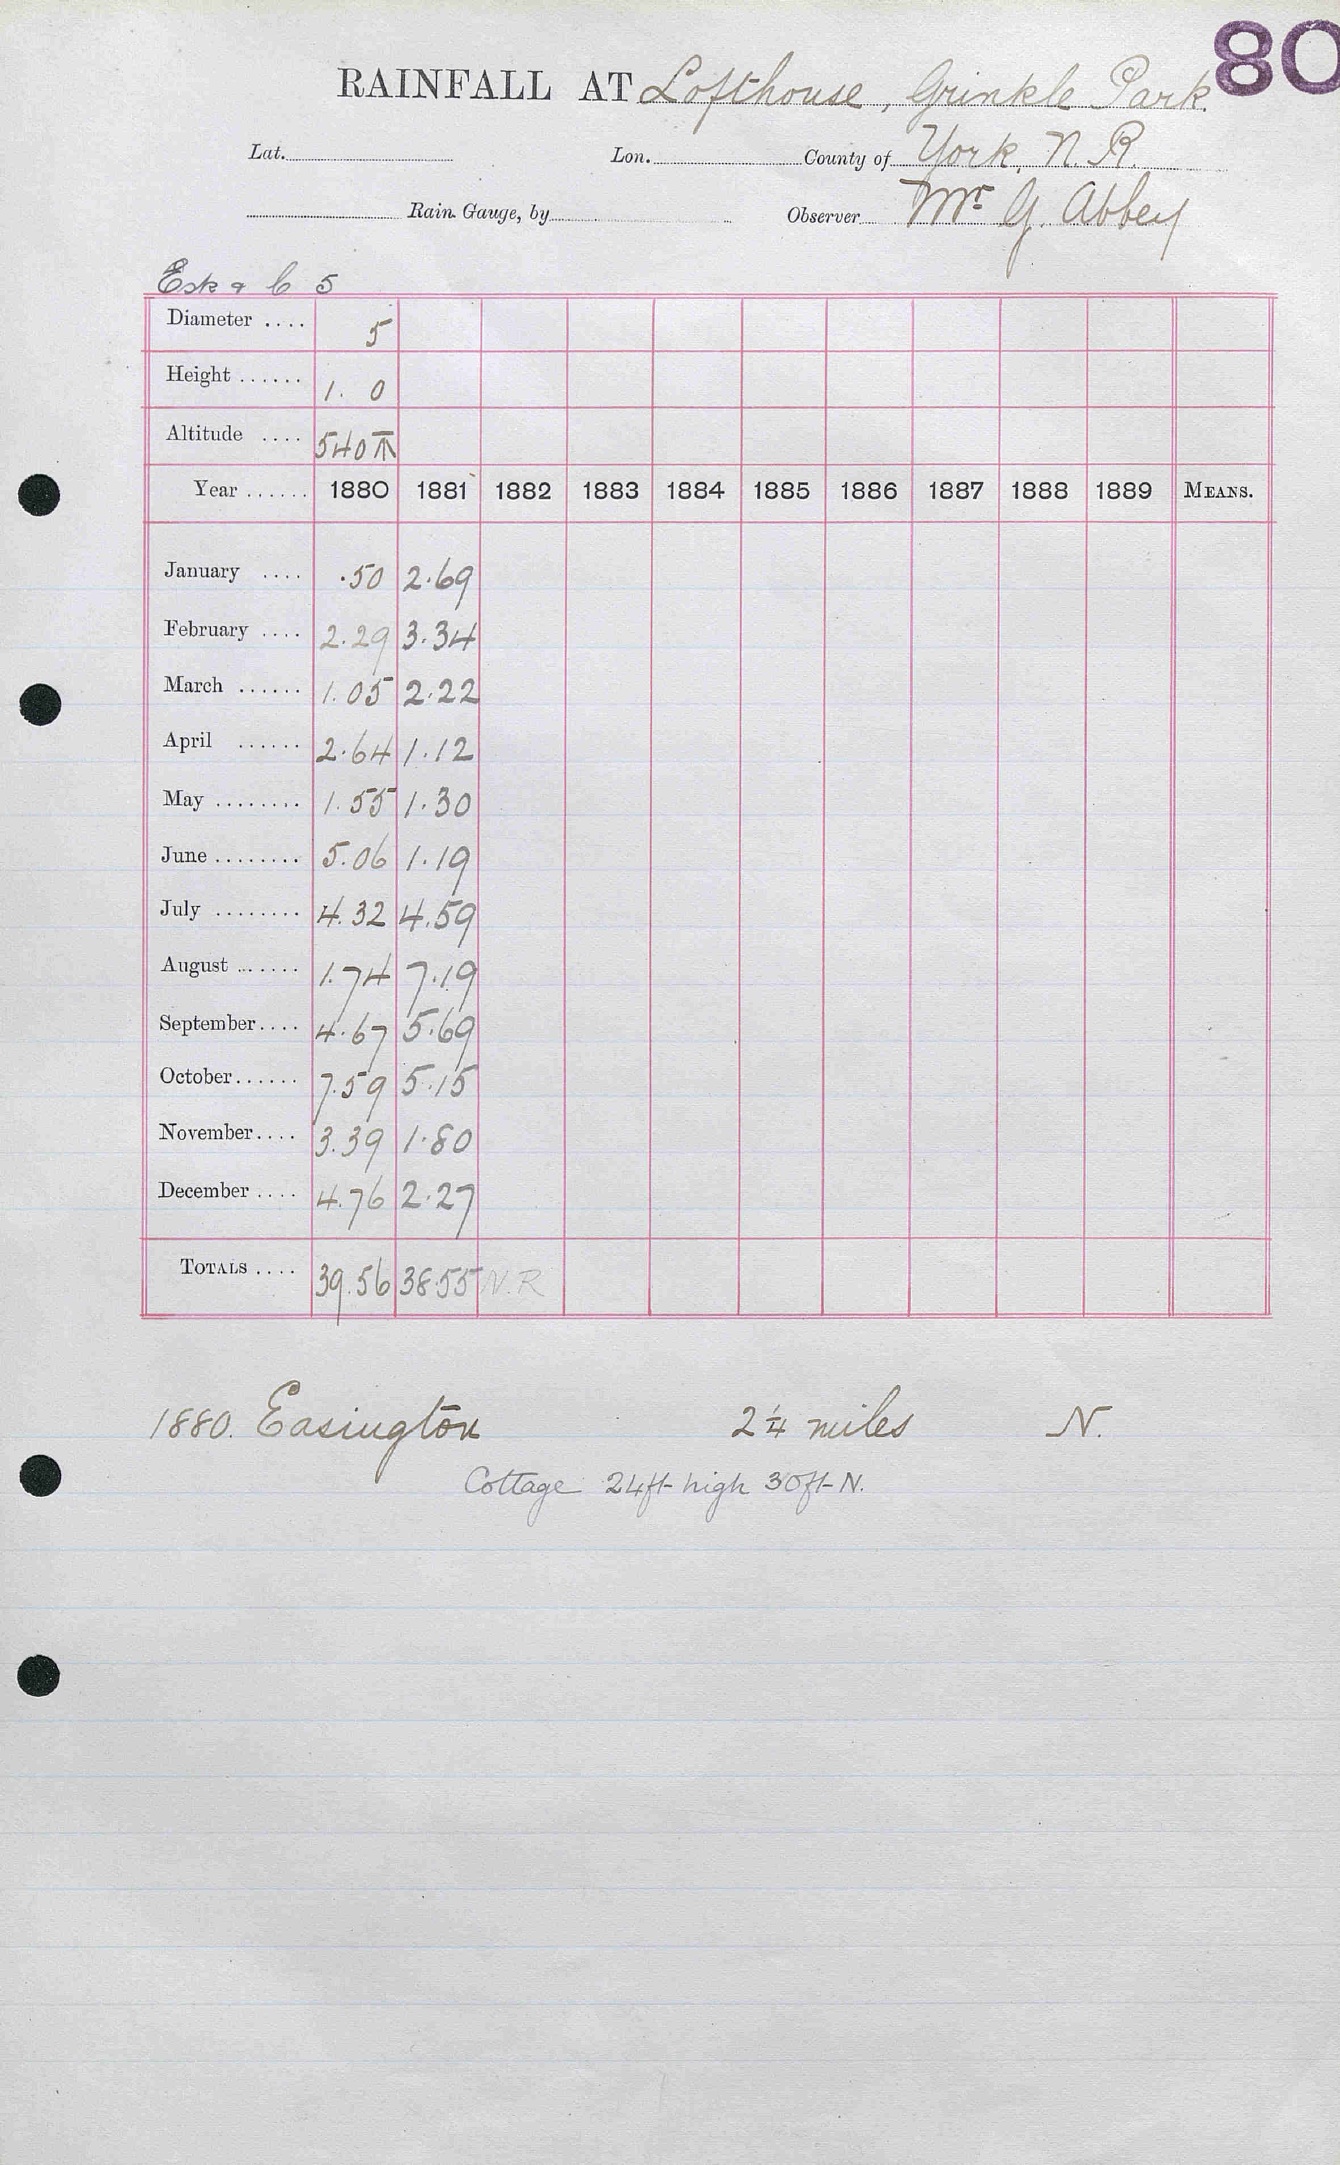 80
RAINFALL AT Lofthouse, Grinkle Park.
Lat. Lon. County of York, N. R.
Rain Gauge, by Observer Mr G. Abbey
Esk & C 5
Diameter .... 5
Height ...... 1. 0
Altitude .... 540
Year ...... 1880 1881 1882 1883 1884 1885 1886 1887 1888 1889 MEANS.
January .... .50 2.69
February .... 2.29 3.34
March ...... 1.05 2.22
April ...... 2.64 1.12
May ........ 1.55 1.30
June ........ 5.06 1.19
July ........ 4.32 4.59
August ...... 1.74 7.19
September.... 4.67 5.69
October...... 7.59 5.15
November.... 3.39 1.80
December .... 4.76 2.27
TOTALS .... 39.56 38.55 N.R
1880. Easington 2¼ miles N.
Cottage 24ft high 30ft N.